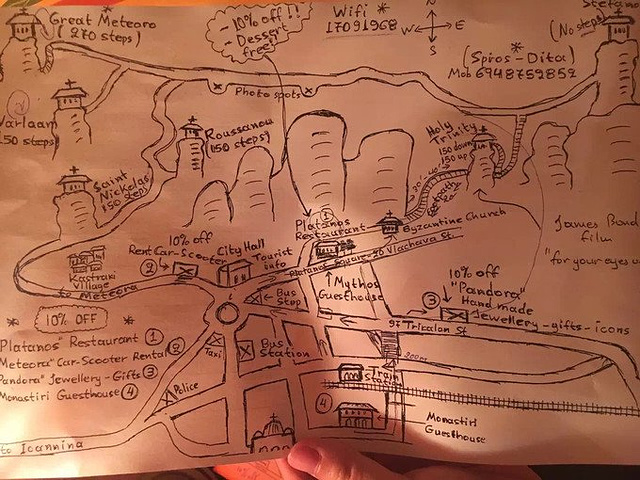 Great Meteoro
(270 steps)
-10% off!!
- Dessert
free!
Wifi *
17091968
W E
S
Stefano
(No steps)
*
(Spiros-Dita)
Mob 6948759852
Varlaam
150 steps)
Photo spots
Roussanou
(150 steps)
Saint
Nickolas
150 steps
Holy
Trinity
150 down
150 up
Platanos
Restaurant
1
Byzantine Church
James Bond
film
"for your eyes
Kastraki
Village
to Meteora
10% off
Rent Car-Scooter
2
City Hall
Tourist
info
i
Platanos Square-20 Vlachava St.
Mythos
Guesthouse
Bus
Stop
10% off
"Pandora"
Hand made
Jewellery-gifts-icons
3
97 Tricalon St
* 10% OFF *
Platanos" Restaurant 1
Meteora" Car-Scooter Rental 2
Pandora" Jewellery-Gifts 3
Monastiri Guesthouse 4
Taxi
Bus
Station
Police
200m
Train
Station
4
Monastiri
Guesthouse
to Ioannina